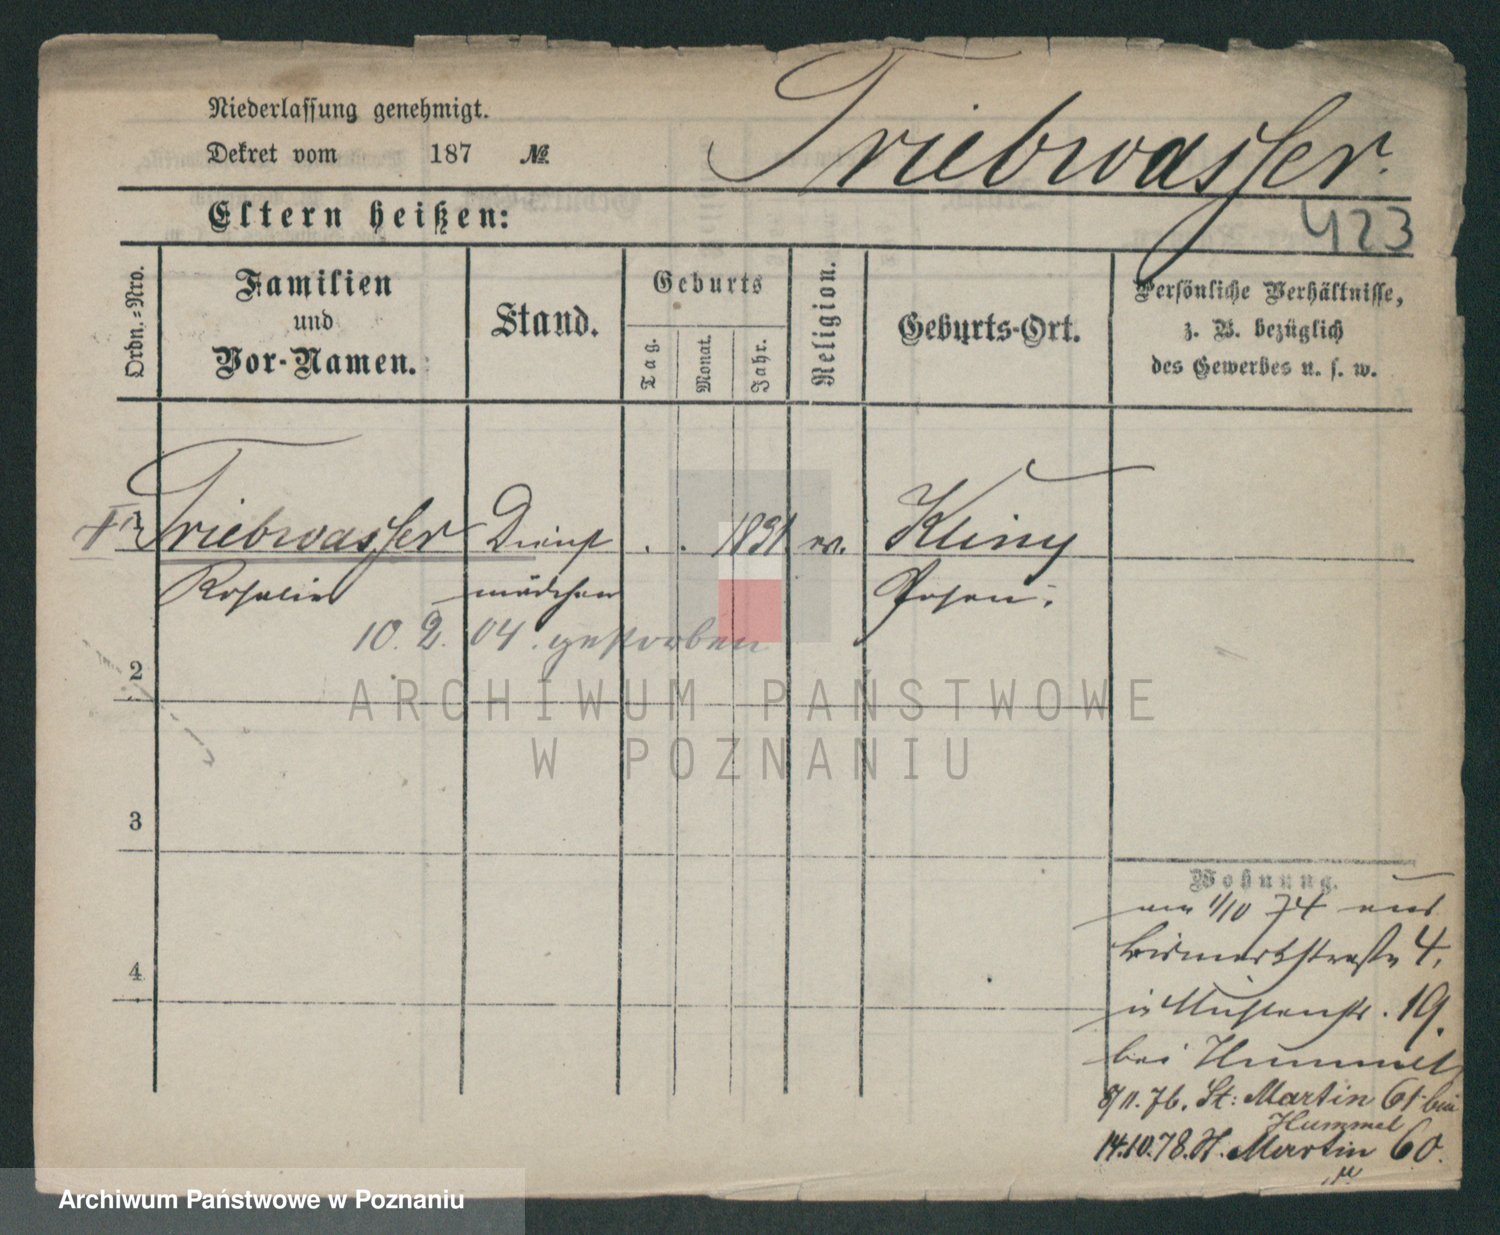 Niederlassung genehmigt.
Dekret vom 187 №
Triebwasser.
Eltern heißen:
423
Ordn.=Nro.
Familien
und
Vor-Namen.
Stand.
Geburts
Tag.
Monat.
Jahr.
Religion.
Geburts-Ort.
Persönliche Verhältnisse,
z. B. bezüglich
des Gewerbes u. s. w.
1 Triebwasser Dienst . . 1831 ev.
Rosalie mädchen Posen.
10. 2. 04. gestorben
2
ARCHIWUM PAŃSTWOWE
W POZNANIU
3
4
Wohnung.
1/10 74 aus
Bismarckstraße 4,
in Mühlenstr. 19.
bei Hummel
8/11. 76. St: Martin 61 bei
Hummel
14.10.78. St. Martin 60.
Archiwum Państwowe w Poznaniu